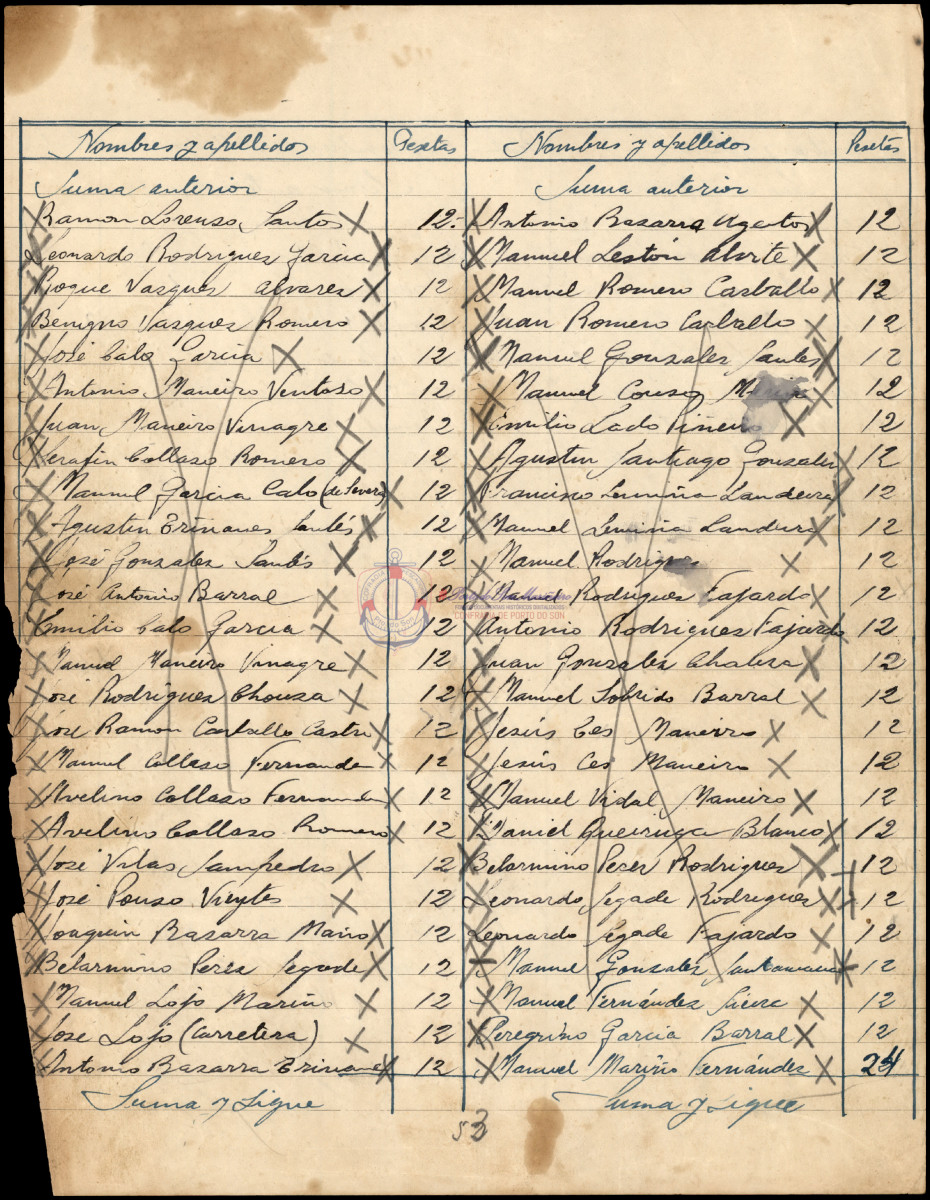 Nombres y apellidos Pesetas Nombres y apellidos Pesetas
Suma anterior
Ramon Lorenzo Santos 12
Leonardo Rodrigues Garcia 12
Roque Vasques Alvares 12
Benigno Vasques Romero 12
José Calo Garcia 12
Antonio Maneiro Ventoso 12
Juan Maneiro Vinagre 12
Serafin Collaso Romero 12
Manuel Garcia Calo (de Severa) 12
Agustin Brianes Santés 12
José Gonzales Santés 12
José Antonio Barral 12
Emilio Calo Garcia 12
Manuel Maneiro Vinagre 12
José Rodrigues Chouza 12
José Ramon Carballo Castro 12
Manuel Collaso Fernandez 12
Avelino Collaso Fernandez 12
Avelino Collaso Romero 12
José Vilas Sampedro 12
José Pouso Vieytes 12
Joaquin Basarra Maino 12
Belarmino Peres Segade 12
Manuel Lojo Mariño 12
Jose Lojo (Carretera) 12
Antonio Basarra Brianes 12
Suma y Sigue
Suma anterior
Antonio Basarra Agestos 12
Manuel Lestón Alvite 12
Manuel Romero Carballo 12
Juan Romero Carballo 12
Manuel Gonzales Santés 12
Manuel Couso 12
Emilio Lado Piñeiro 12
Agustin Santiago Gonzales 12
Francisco Lemiña Landeira 12
Manuel Lemiña Landeira 12
Manuel Rodrigues 12
Manuel Rodrigues Fajardo 12
Antonio Rodrigues Fajardo 12
Juan Gonzales Chalesa 12
Manuel Sobrido Barral 12
Jesús Ces Maneiro 12
Jesús Ces Maneiro 12
Manuel Vidal Maneiro 12
Daniel Queiruga Blanco 12
Belarmino Perez Rodrigues 12
Leonardo Segade Rodrigues 12
Leonardo Segade Fajardo 12
Manuel Gonzalés Santamaria 12
Manuel Fernández Sieira 12
Peregrino Garcia Barral 12
Manuel Mariño Fernández 24
Suma y sigue
CONFRARÍA DE PORTO DO SON